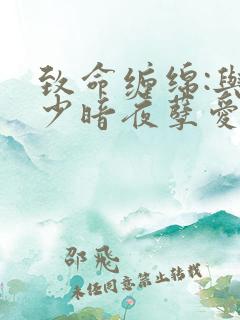 致命缠绵:与
少暗夜孽爱
邵飛
未经同意禁止转载